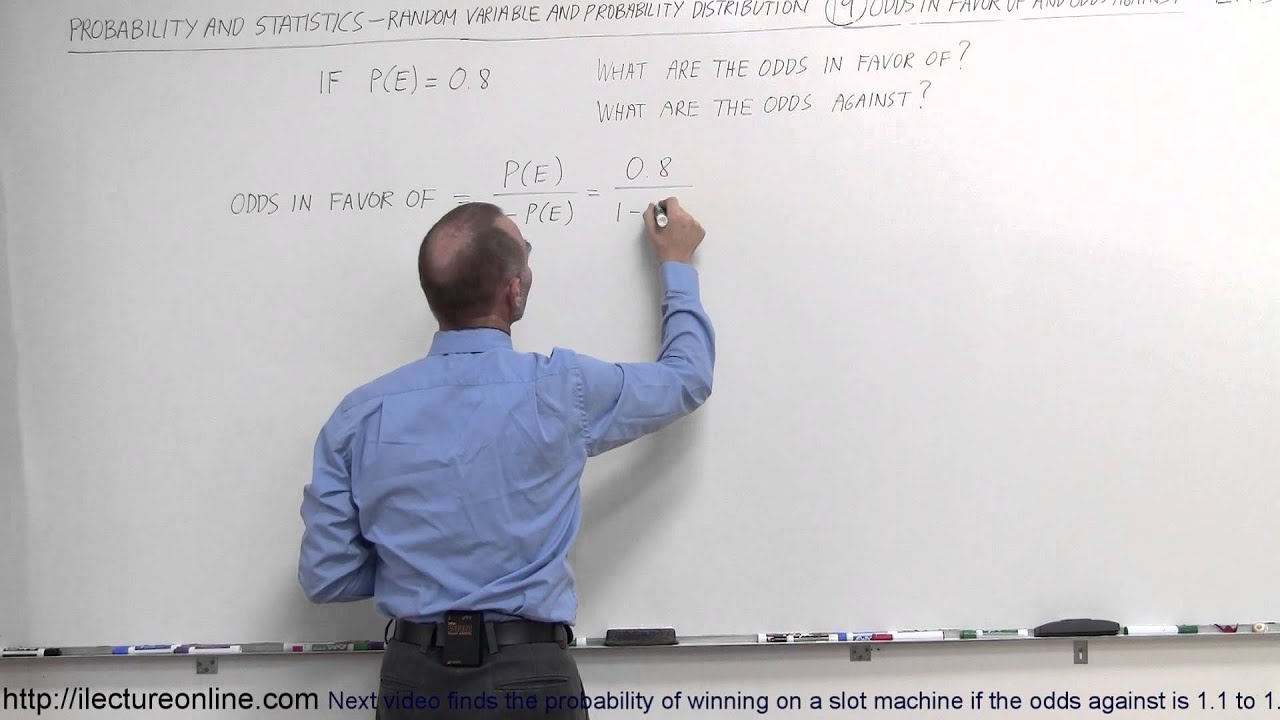 PROBABILITY AND STATISTICS - RANDOM VARIABLE AND PROBABILITY DISTRIBUTION (19) ODDS IN FAVOR OF AND ODDS AGAINST
IF P(E) = 0.8
WHAT ARE THE ODDS IN FAVOR OF?
WHAT ARE THE ODDS AGAINST?
ODDS IN FAVOR OF = P(E) / - P(E) = 0.8 / 1 -
http://ilectureonline.com Next video finds the probability of winning on a slot machine if the odds against is 1.1 to 1.